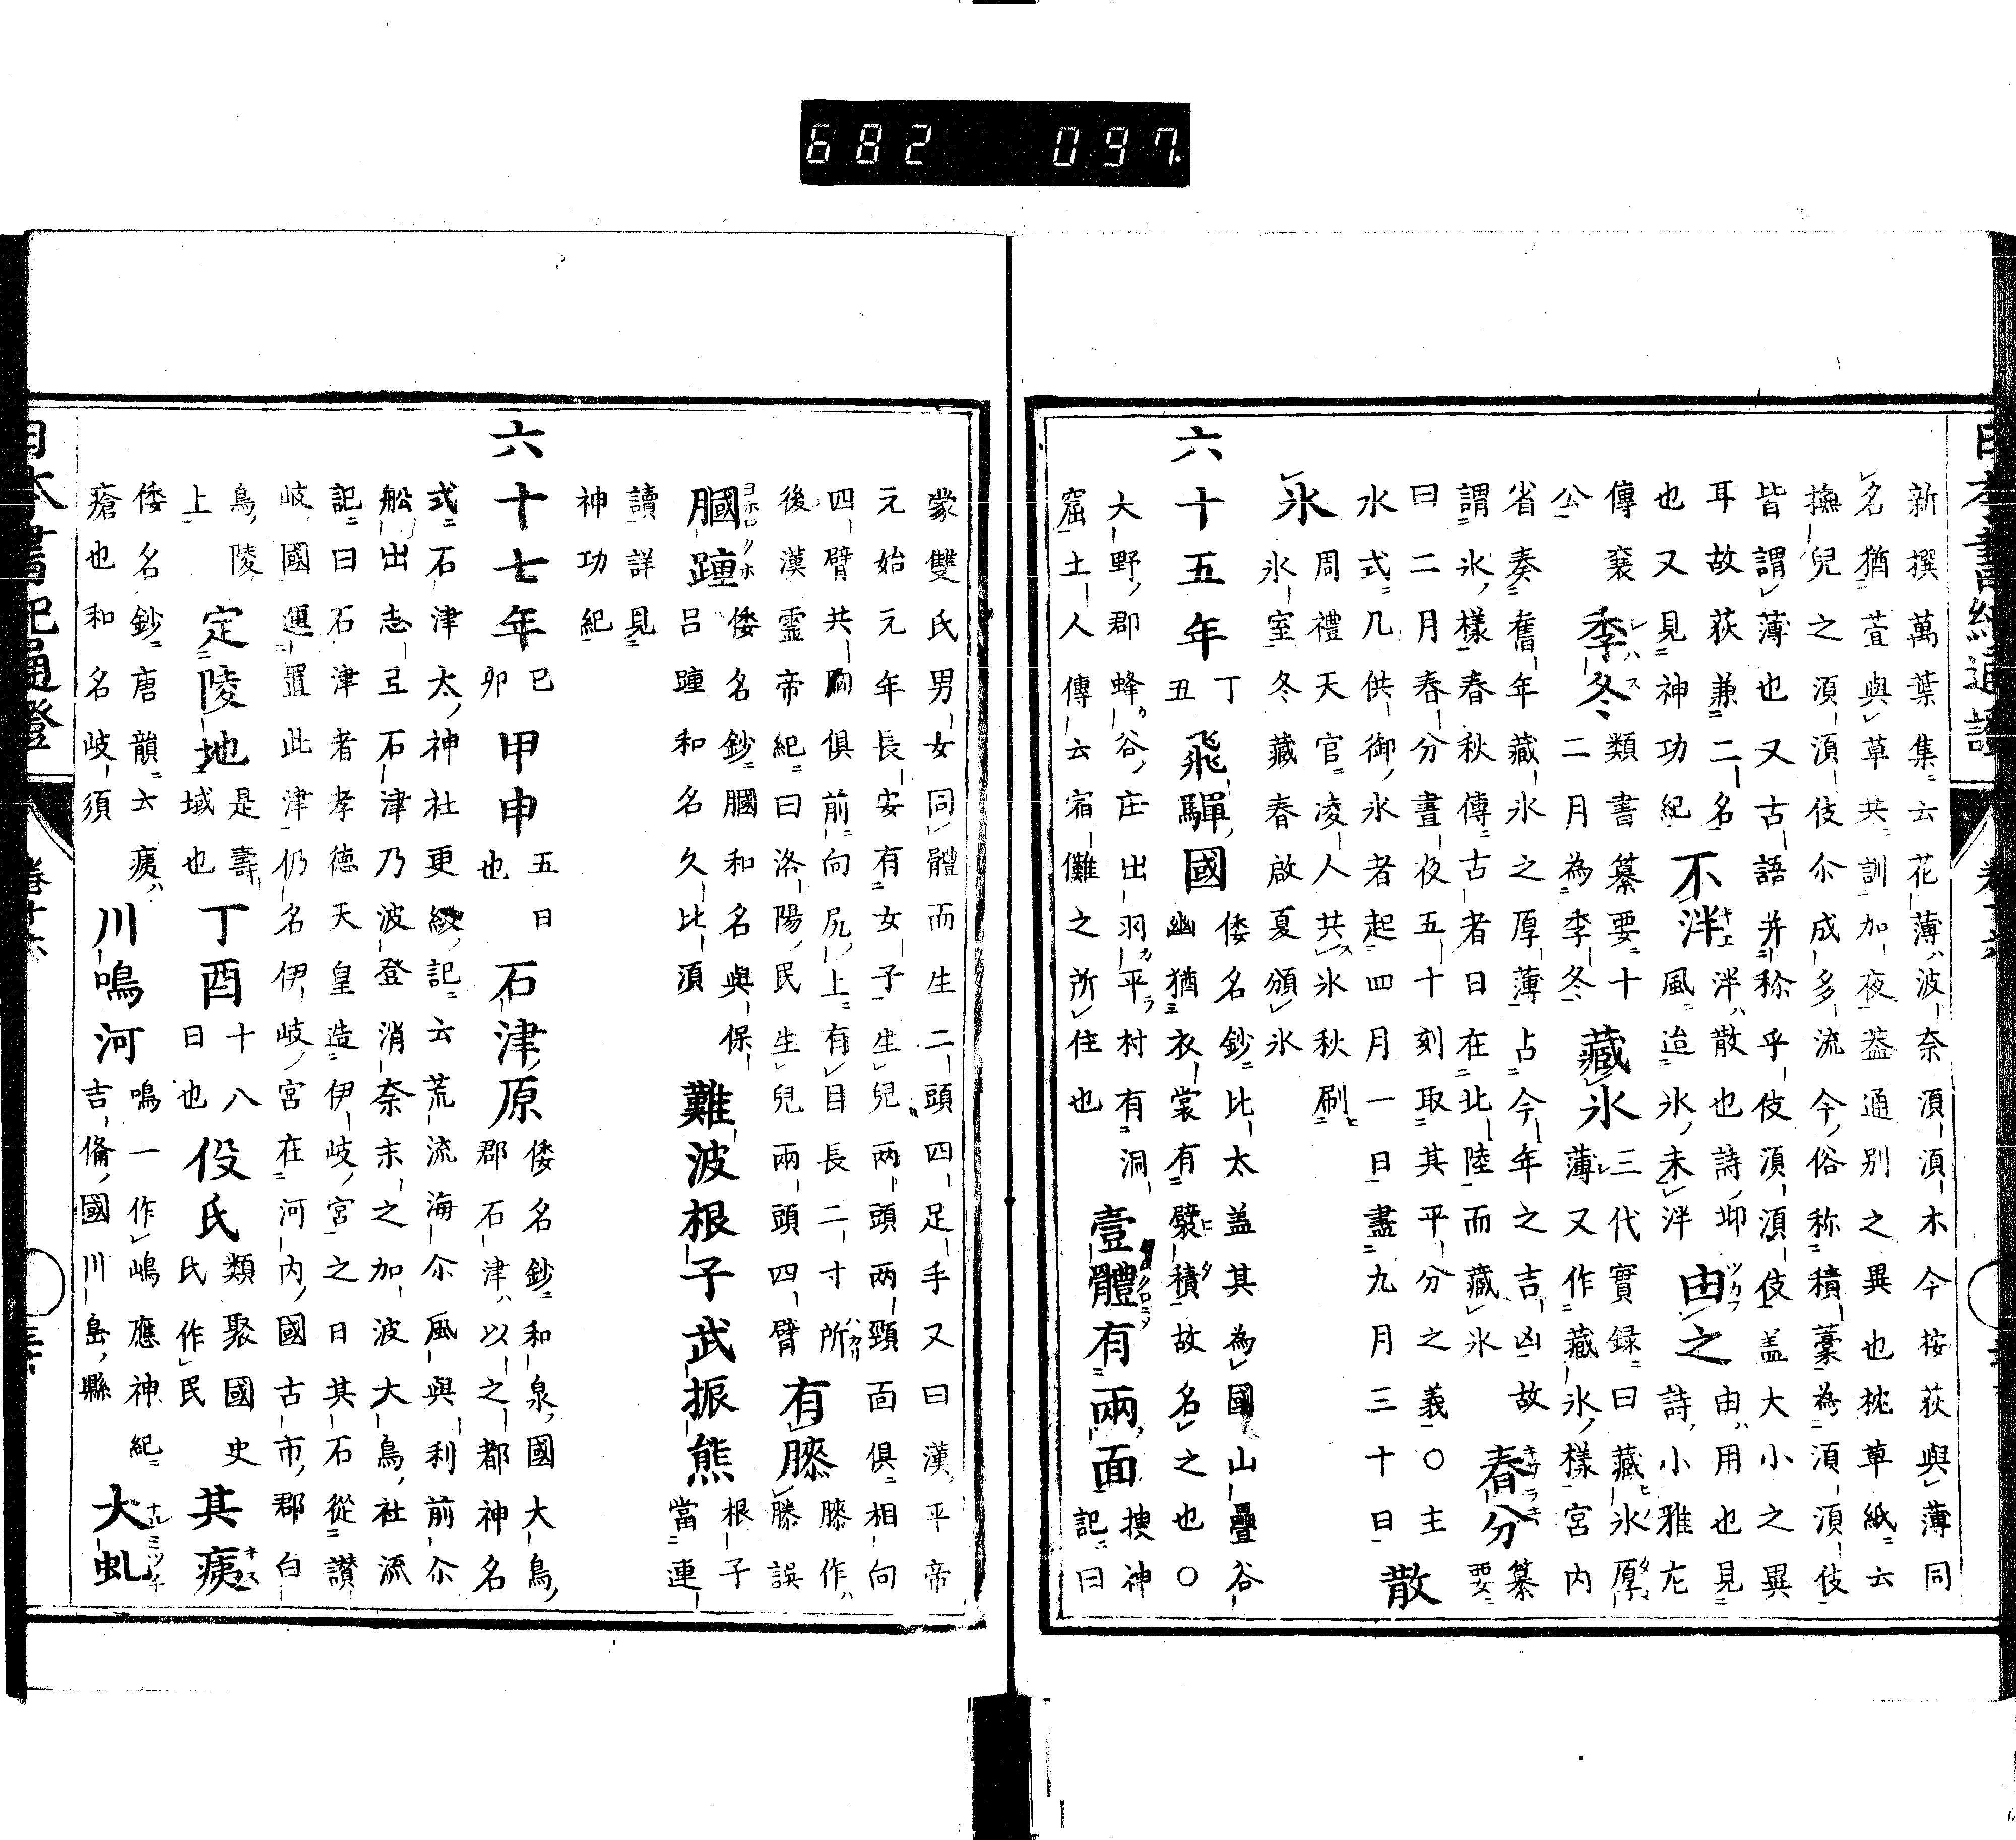 682 097.
新撰萬葉集云花薄波奈湏湏木今按荻與薄同
名猶萱與草共訓加夜葢通別之異也枕草紙云
撫兒之湏湏伎尒成多流今俗称積藁為湏湏伎
皆謂薄也又古語并称乎伎湏湏伎盖大小之異
耳故荻兼二名 不泮 泮散也詩邶 由之 由用也見
也又見神功紀 風迨氷未泮 詩小雅左
傳襄 季冬 類書纂要十 藏氷 三代實録曰藏氷厚
公 二月為季冬 薄又作藏氷樣宮内
省奏舊年藏氷之厚薄占今年之吉凶故 春分 纂
謂氷樣春秋傳古者日在北陸而藏氷 要
曰二月春分晝夜五十刻取其平分之義〇主
水式凡供御氷者起四月一日盡九月三十日 散
氷 周禮天官凌人共氷秋刷
氷室冬藏春啟夏頒氷
六十五年 丁丑 飛騨國 倭名鈔比太盖其為國山疊谷
幽猶衣裳有襞積故名之也〇
大野郡蜂谷庄出羽平村有洞 壹體有兩面 搜神
窟土人傳云宿儺之所住也 記曰
蒙雙氏男女同體而生二頭四足手又曰漢平帝
元始元年長安有女子生兒兩頭兩頸面俱相向
四臂共胸俱前向尻上有目長二寸所 有膝 膝作
後漢靈帝紀曰洛陽民生兒兩頭四臂 滕誤
膕踵 倭名鈔膕和名與保 難波根子武振熊 根子
呂踵和名久比湏 當連
讀詳見
神功紀
六十七年 己卯 甲申 五日也 石津原 倭名鈔和泉國大鳥
郡石津以之都神名
式石津太神社更級記云荒流海尒風與利前尒
舩出志弖石津乃波登消奈末之加波大鳥社流
記曰石津者孝德天皇造伊岐宮之日其石從讃
岐國運置此津仍名伊岐宮在河内國古市郡白
鳥陵 定陵地 是壽 丁酉 十八 伇氏 類聚國史 其痍
上 域也 日也 氏作民
倭名鈔唐韻云痍 川鳴河 鳴一作嶋應神紀 大虬
瘡也和名岐須 吉備國川島縣